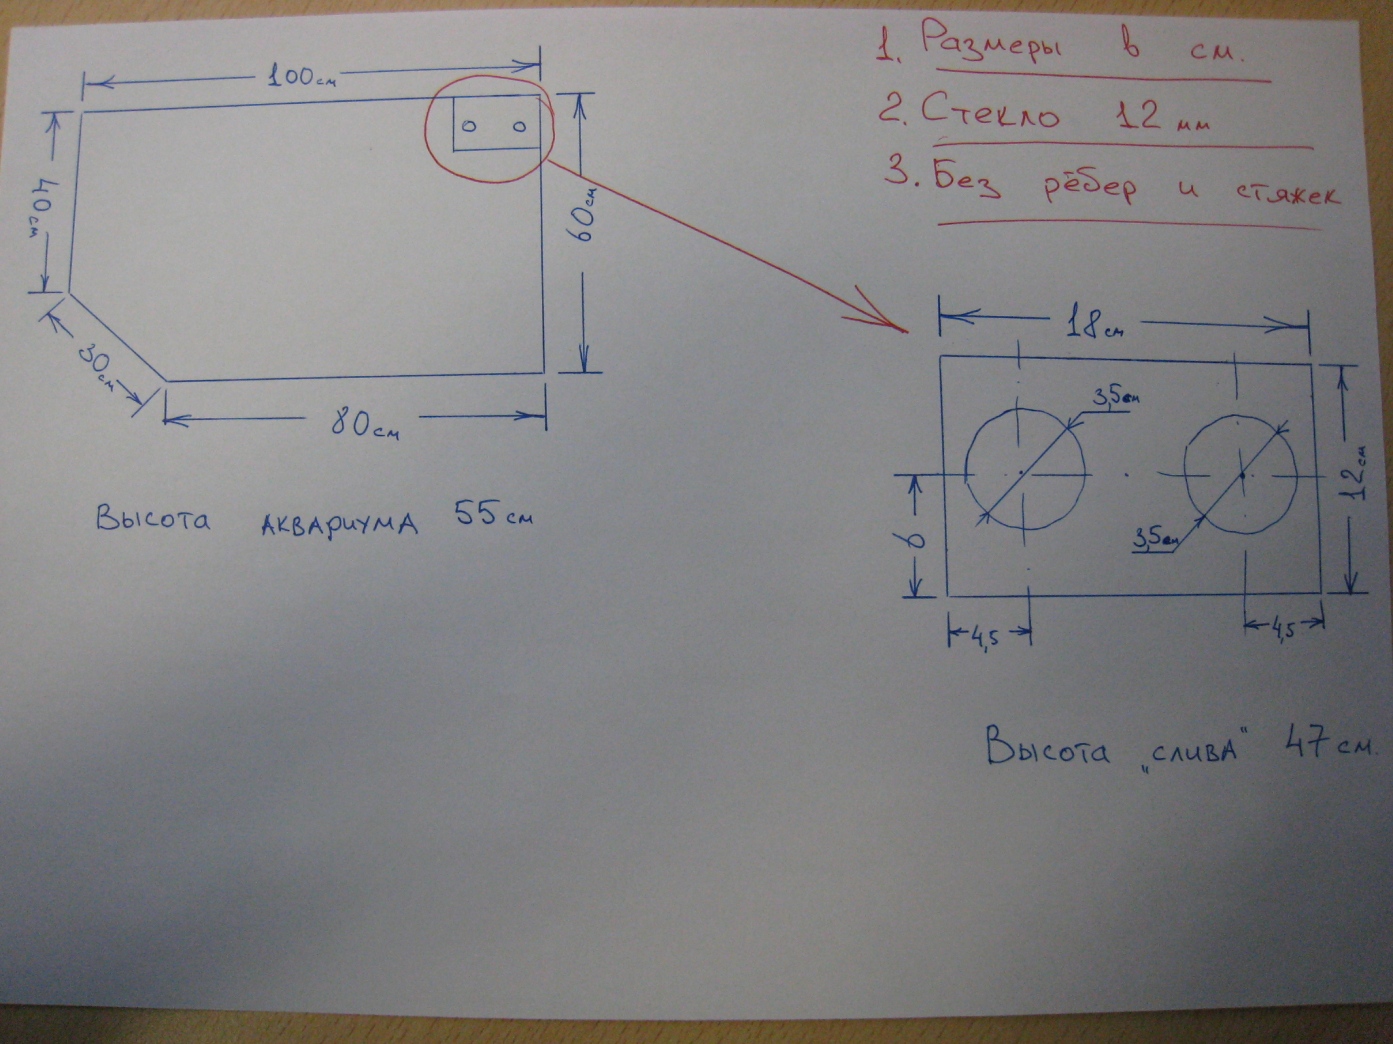 1. Размеры в см.
2. Стекло 12 мм
3. Без рёбер и стяжек
100см
40см
60см
30см
80см
Высота аквариума 55см
18см
3,5см
12см
6
3,5см
4,5
4,5
Высота „слива“ 47см.